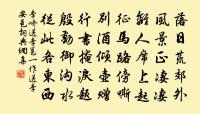 落日荒郊外
風景正淒淒
離人席上起
征馬路傍嘶
別酒傾壺贈
行書掩淚題
殷勤御溝水
從此各東西
李嶠送李邕一作送李
安邑詞典網集